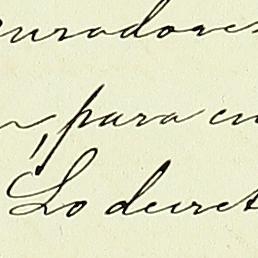 curadores
, para en
Lo decret